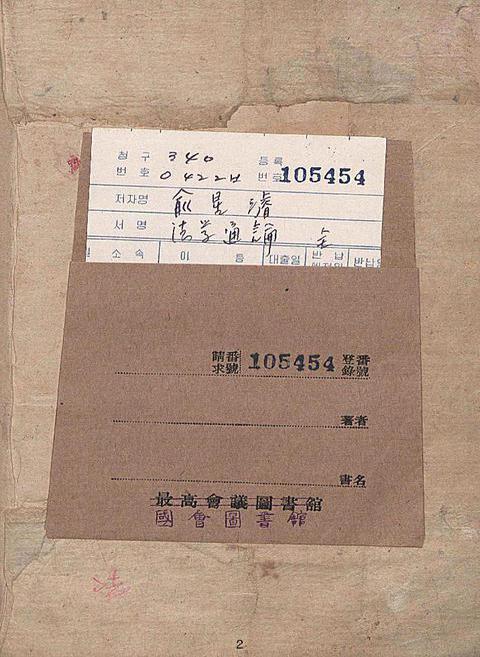 청구 340 등록
번호 0422ㅂ 번호 105454
저자명 兪星濬
서명 法学通論 全
소속 이 름 대출일 반납 반납
請求番號 105454 登錄番號
著者
書名
最高會議圖書館
國會圖書館
2